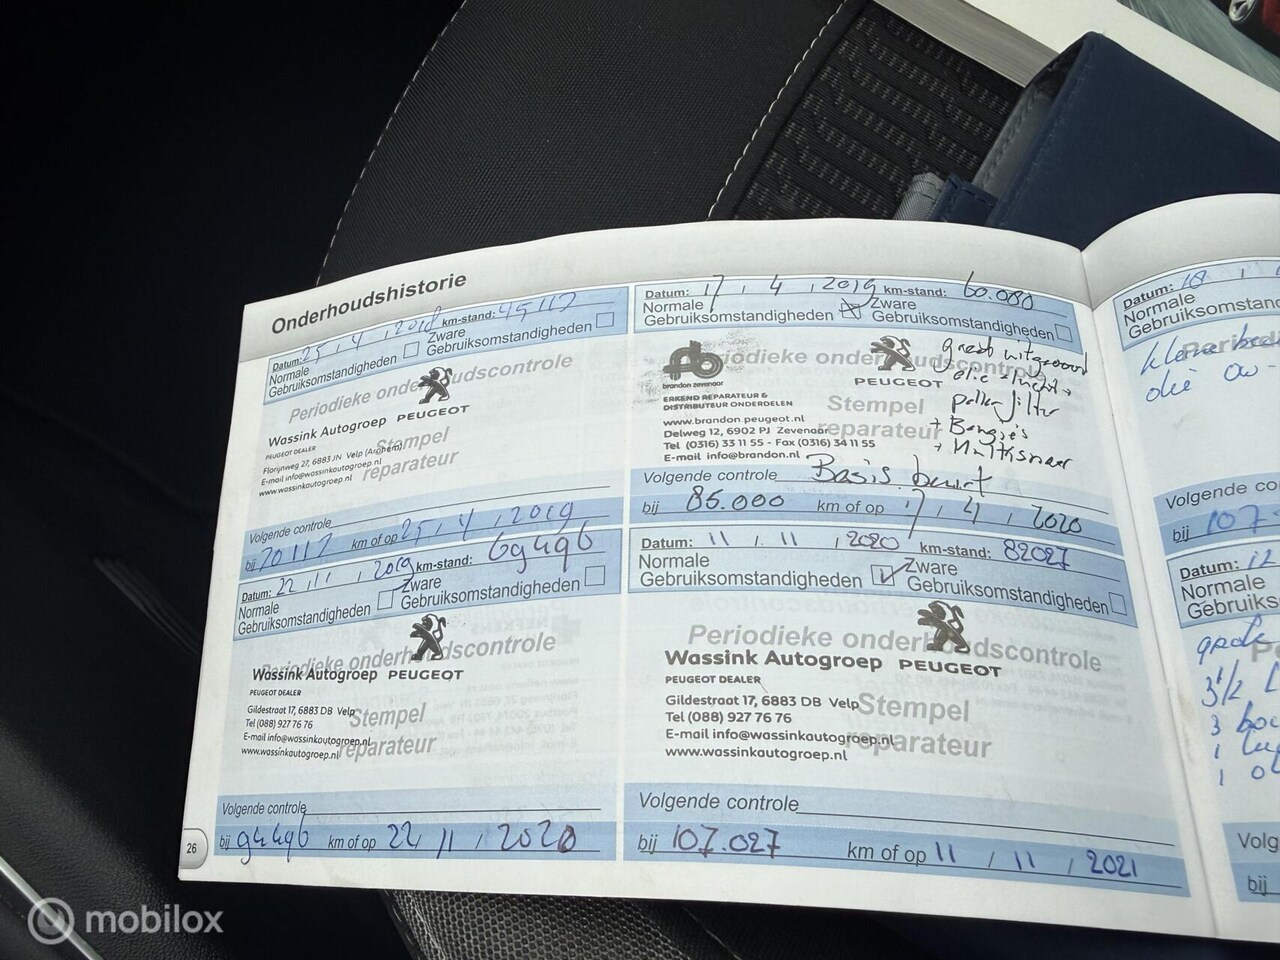 Onderhoudshistorie
Datum: 25 / 4 / 2018 km-stand: 45117
Normale Gebruiksomstandigheden
Zware Gebruiksomstandigheden
Periodieke onderhoudscontrole
Wassink Autogroep PEUGEOT
PEUGEOT DEALER
Florijnweg 27, 6883 JN Velp (Arnhem)
E-mail info@wassinkautogroep.nl
www.wassinkautogroep.nl
Stempel
reparateur
Volgende controle
bij 70117 km of op 25 / 4 / 2019
Datum: 17 / 4 / 2019 km-stand: 60.080
Normale Gebruiksomstandigheden
Zware Gebruiksomstandigheden
Periodieke onderhoudscontrole
brandon zevenaar
PEUGEOT
ERKEND REPARATEUR &
DISTRIBUTEUR ONDERDELEN
www.brandon.peugeot.nl
Delweg 12, 6902 PJ Zevenaar
Tel (0316) 33 11 55 - Fax (0316) 34 11 55
E-mail info@brandon.nl
Stempel
reparateur
+ Bougie's
Volgende controle Basis beurt
bij 85.000 km of op 17 / 4 / 2020
Datum: 22 / 11 / 2019 km-stand: 69496
Normale Gebruiksomstandigheden
Zware Gebruiksomstandigheden
Periodieke onderhoudscontrole
Wassink Autogroep PEUGEOT
PEUGEOT DEALER
Gildestraat 17, 6883 DB Velp
Tel (088) 927 76 76
E-mail info@wassinkautogroep.nl
www.wassinkautogroep.nl
Stempel
reparateur
Volgende controle
bij 94496 km of op 22 / 11 / 2020
Datum: 11 / 11 / 2020 km-stand: 82027
Normale Gebruiksomstandigheden
Zware Gebruiksomstandigheden
Periodieke onderhoudscontrole
Wassink Autogroep PEUGEOT
PEUGEOT DEALER
Gildestraat 17, 6883 DB Velp
Tel (088) 927 76 76
E-mail info@wassinkautogroep.nl
www.wassinkautogroep.nl
Stempel
reparateur
Volgende controle
bij 107.027 km of op 11 / 11 / 2021
26
Datum: 18
Normale
Gebruiksomstand
olie
Volgende co
bij 107
Datum: 12
Normale
Gebruiksoms
3 1/2 L
Volg
bij
mobilox